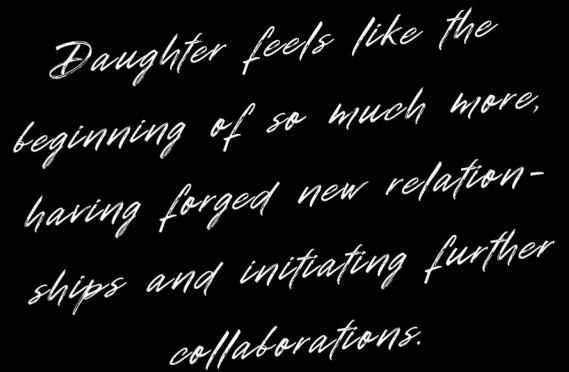 Daughter feels like the
beginning of so much more,
having forged new relation-
ships and initiating further
collaborations.